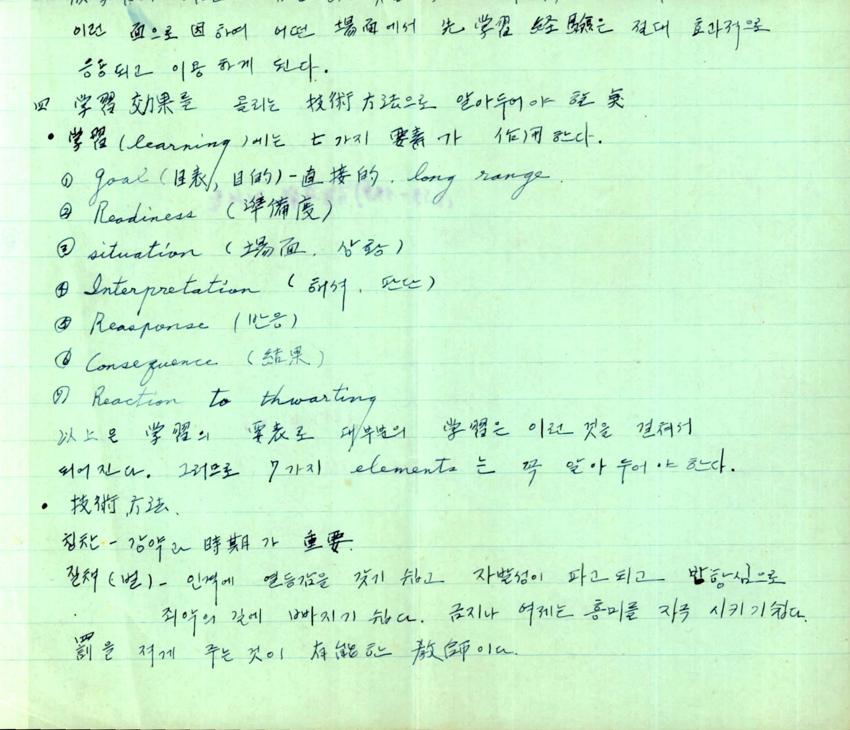 이런 面으로 因하여 어떤 場面에서 先 学習 経驗은 절대 효과적으로
응용되고 이용하게 된다.
四 学習 効果를 올리는 技術 方法으로 알아두어야 할 点
• 学習(learning)에는 七가지 要素가 作用한다.
① goal (目表, 目的) - 直接的. long range.
② Readiness (準備度)
③ situation (場面. 상황)
④ Interpretation (해석. 판단)
⑤ Reasponse (반응)
⑥ Consequence (結果)
⑦ Reaction to thwarting
以上은 学習의 要表로 대부분의 学習은 이런 것을 걸쳐서
되어진다. 그러므로 7가지 elements는 꼭 알아 두어야 한다.
• 技術 方法.
칭찬 - 강약과 時期가 重要.
질책(벌) - 인격에 열등감을 갖기 쉽고 자발성이 파고되고 반항심으로
죄악의 길에 빠지기 쉽다. 금지나 억제는 흥미를 자극 시키기 쉽다.
罰을 적게 주는 것이 有能한 教師이다.